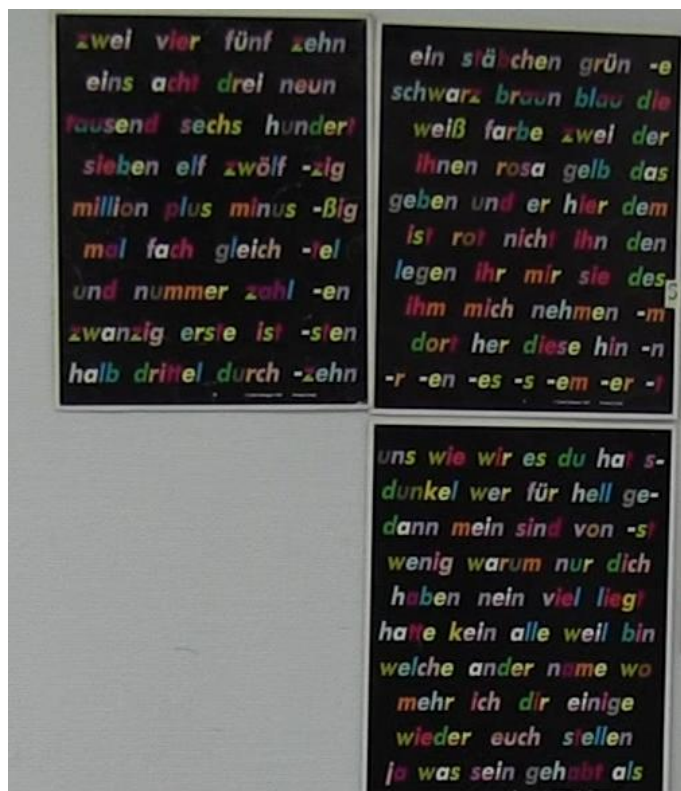 zwei vier fünf zehn
eins acht drei neun
tausend sechs hundert
sieben elf zwölf -zig
million plus minus -ßig
mal fach gleich -tel
und nummer zahl -en
zwanzig erste ist -sten
halb drittel durch -zehn
ein stäbchen grün -e
schwarz braun blau die
weiß farbe zwei der
ihnen rosa gelb das
geben und er hier dem
ist rot nicht ihn den
legen ihr mir sie des
5
ihm mich nehmen -m
dort her diese hin -n
-r -en -es -s -em -er -t
uns wie wir es du hat s-
dunkel wer für hell ge-
dann mein sind von -st
wenig warum nur dich
haben nein viel liegt
hatte kein alle weil bin
welche ander name wo
mehr ich dir einige
wieder euch stellen
ja was sein gehabt als